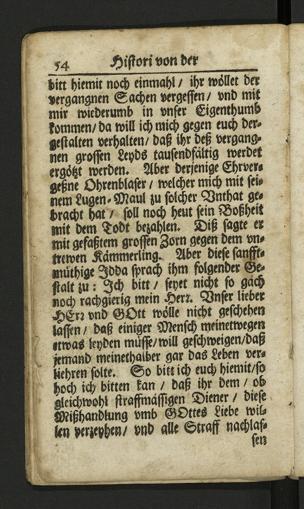 54 Histori von der
bitt hiemit noch einmahl / ihr wöllet der
vergangnen Sachen vergessen / vnd mit
mir wiederumb in vnser Eigenthumb
kommen / da will ich mich gegen euch der-
gestalten verhalten / daß ihr deß vergang-
nen grossen Leyds tausendfältig werdet
ergötzt werden. Aber derjenige Ehrver-
geßne Ohrenblaser / welcher mich mit sei-
nem Lugen-Maul zu solcher Vnthat ge-
bracht hat / soll noch heut sein Boßheit
mit dem Todt bezahlen. Diß sagte er
mit gefaßtem grossen Zorn gegen dem vn-
trewen Kämmerling. Aber diese sanfft-
müthige Idda sprach ihm folgender Ge-
stalt zu: Ich bitt / seyet nicht so gäch
noch rachgierig mein Herr. Vnser lieber
HErr vnd GOtt wölle nicht geschehen
lassen / daß einiger Mensch meinetwegen
etwas leyden musse / will geschweigen / daß
jemand meinethalber gar das Leben ver-
liehren solte. So bitt ich euch hiemit / so
hoch ich bitten kan / daß ihr dem / ob
gleichwohl straffmässigen Diener / diese
Mißhandlung vmb GOttes Liebe wil-
len verzeyhen / vnd alle Straff nachlas-
sen